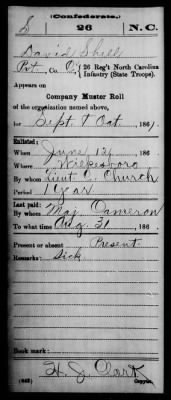 (Confederate.)
S 26 N.C.
David Shell
Pvt, Co. C, 26 Reg't North Carolina
Infantry (State Troops).
Appears on
Company Muster Roll
of the organization named above,
for Sept & Oct, 186 .
Enlisted:
When June 12, 186 .
Where Wilkesboro
By whom Lieut C. Church
Period 1 Year
Last paid:
By whom Maj. Cameron
To what time Aug. 31, 186 .
Present or absent Present
Remarks: Sick
Book mark:
(642) H. J. Clark
Copyist.